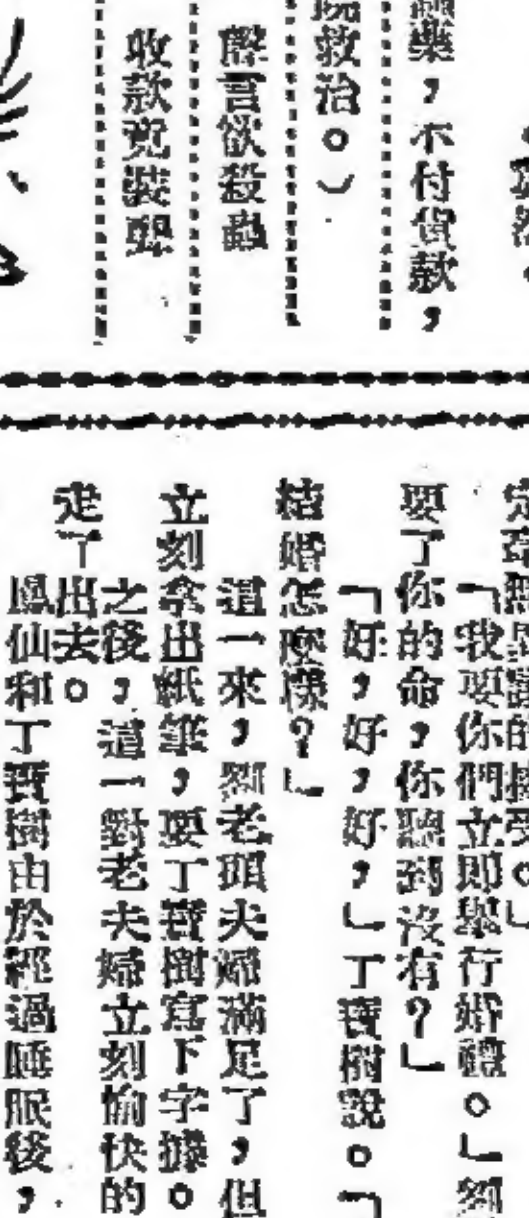 樂,不付貨款,
院救治。)
醒言欲殺蟲
收款竟裝瘋
的接受。」
「我要你們立即舉行婚禮。」劉
要了你的命,你聽到沒有?」
「好,好,好,」丁寶樹說。「
結婚怎麼樣?」
這一來,劉老頭夫婦滿足了,但
立刻拿出紙筆,要丁寶樹寫下字據。
之後,這一對老夫婦立刻愉快的
走了出去。
鳳仙和丁寶樹由於經過睡眠後,